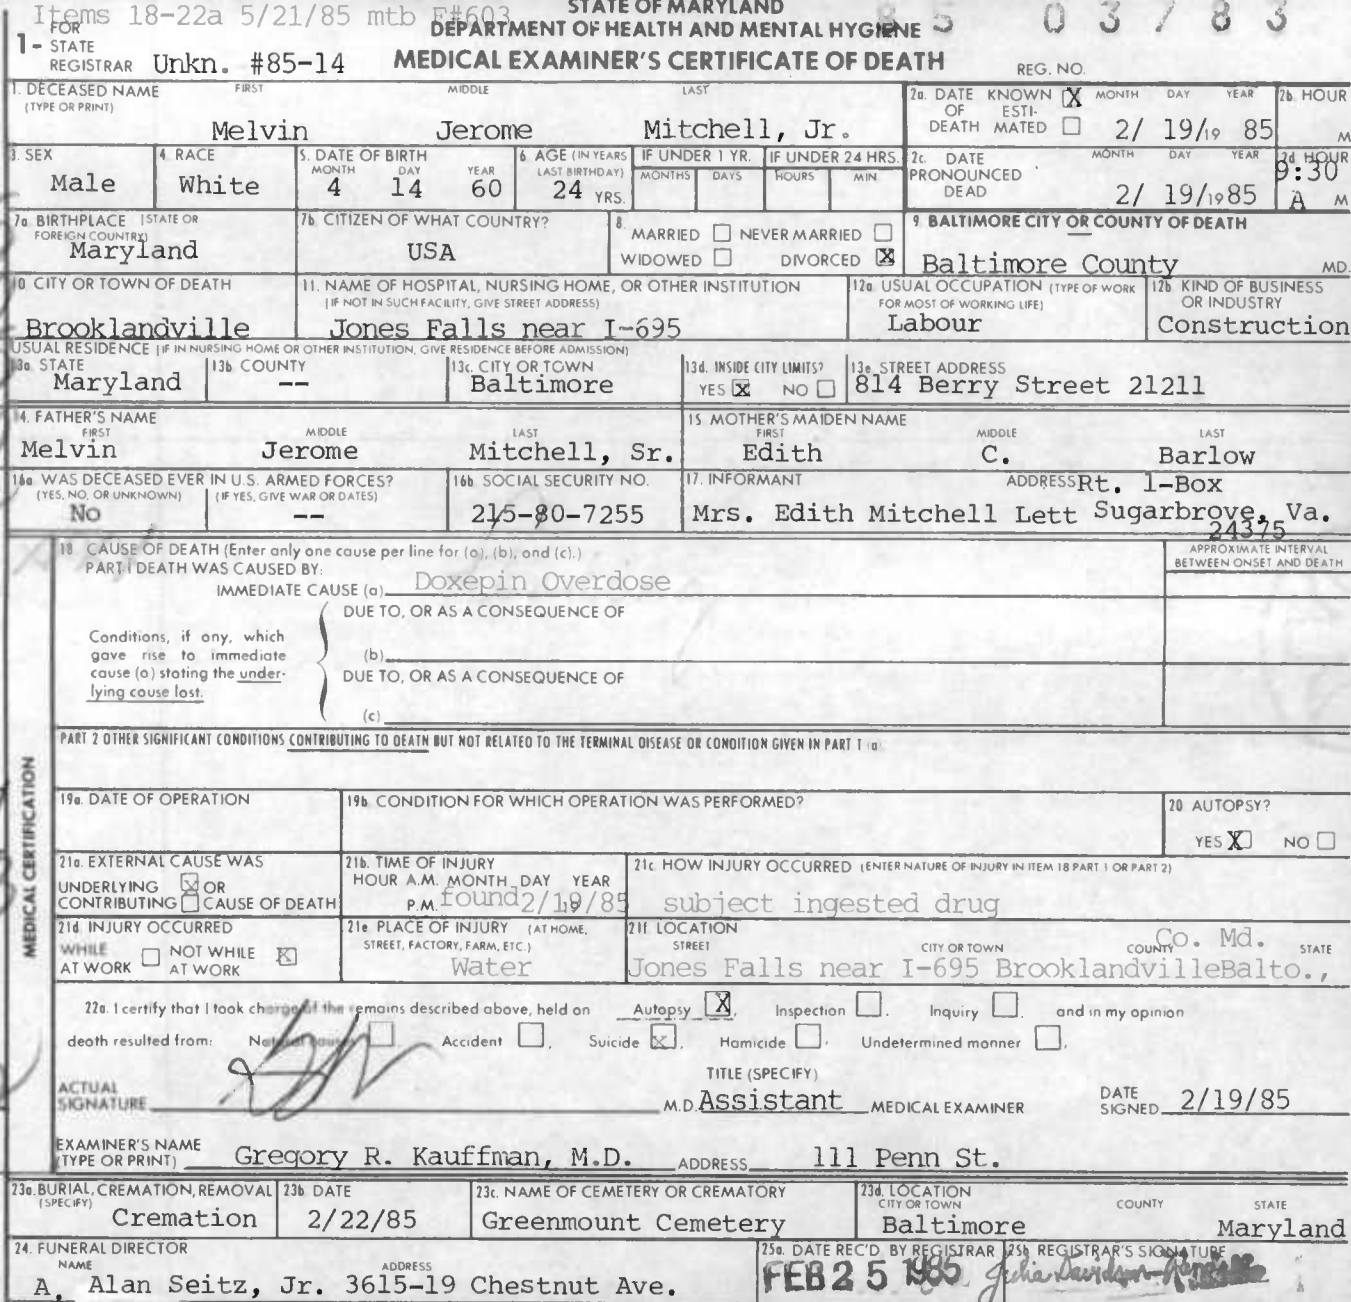 Items 18-22a 5/21/85 mtb F#603
STATE OF MARYLAND
DEPARTMENT OF HEALTH AND MENTAL HYGIENE
85 03783
FOR
1- STATE
REGISTRAR Unkn. #85-14
MEDICAL EXAMINER'S CERTIFICATE OF DEATH
REG. NO.
1. DECEASED NAME FIRST MIDDLE LAST
(TYPE OR PRINT)
Melvin Jerome Mitchell, Jr.
2a. DATE KNOWN X MONTH DAY YEAR
OF ESTI-
DEATH MATED 2/ 19/19 85
2b. HOUR
M
3. SEX
Male
4. RACE
White
5. DATE OF BIRTH
MONTH DAY YEAR
4 14 60
6. AGE (IN YEARS
LAST BIRTHDAY)
24 YRS.
IF UNDER 1 YR.
MONTHS DAYS
IF UNDER 24 HRS.
HOURS MIN
2c. DATE MONTH DAY YEAR
PRONOUNCED
DEAD 2/ 19/1985
2d HOUR
9:30
A M
7a BIRTHPLACE (STATE OR
FOREIGN COUNTRY)
Maryland
7b. CITIZEN OF WHAT COUNTRY?
USA
8.
MARRIED NEVER MARRIED
WIDOWED DIVORCED X
9. BALTIMORE CITY OR COUNTY OF DEATH
Baltimore County MD.
10. CITY OR TOWN OF DEATH
Brooklandville
11. NAME OF HOSPITAL, NURSING HOME, OR OTHER INSTITUTION
(IF NOT IN SUCH FACILITY, GIVE STREET ADDRESS)
Jones Falls near I-695
12a. USUAL OCCUPATION (TYPE OF WORK
FOR MOST OF WORKING LIFE)
Labour
12b. KIND OF BUSINESS
OR INDUSTRY
Construction
USUAL RESIDENCE (IF IN NURSING HOME OR OTHER INSTITUTION, GIVE RESIDENCE BEFORE ADMISSION)
13a. STATE
Maryland
13b. COUNTY
--
13c. CITY OR TOWN
Baltimore
13d. INSIDE CITY LIMITS?
YES X NO
13e. STREET ADDRESS
814 Berry Street 21211
14. FATHER'S NAME
FIRST MIDDLE LAST
Melvin Jerome Mitchell, Sr.
15. MOTHER'S MAIDEN NAME
FIRST MIDDLE LAST
Edith C. Barlow
16a. WAS DECEASED EVER IN U.S. ARMED FORCES?
(YES, NO, OR UNKNOWN) (IF YES, GIVE WAR OR DATES)
No --
16b. SOCIAL SECURITY NO.
215-80-7255
17. INFORMANT ADDRESS Rt. 1-Box
Mrs. Edith Mitchell Lett Sugarbrove, Va.
24375
18 CAUSE OF DEATH (Enter only one cause per line for (a), (b), and (c).)
PART I DEATH WAS CAUSED BY:
IMMEDIATE CAUSE (a) Doxepin Overdose
APPROXIMATE INTERVAL
BETWEEN ONSET AND DEATH
DUE TO, OR AS A CONSEQUENCE OF
Conditions, if any, which
gave rise to immediate
cause (a) stating the under-
lying cause last.
(b)
DUE TO, OR AS A CONSEQUENCE OF
(c)
PART 2 OTHER SIGNIFICANT CONDITIONS CONTRIBUTING TO DEATH BUT NOT RELATED TO THE TERMINAL DISEASE OR CONDITION GIVEN IN PART 1 (a)
MEDICAL CERTIFICATION
19a. DATE OF OPERATION
19b. CONDITION FOR WHICH OPERATION WAS PERFORMED?
20. AUTOPSY?
YES X NO
21a. EXTERNAL CAUSE WAS
UNDERLYING X OR
CONTRIBUTING CAUSE OF DEATH
21b. TIME OF INJURY
HOUR A.M. MONTH DAY YEAR
P.M. found 2/19/85
21c. HOW INJURY OCCURRED (ENTER NATURE OF INJURY IN ITEM 18 PART 1 OR PART 2)
subject ingested drug
21d INJURY OCCURRED
WHILE NOT WHILE X
AT WORK AT WORK
21e PLACE OF INJURY (AT HOME,
STREET, FACTORY, FARM, ETC.)
Water
21f. LOCATION
STREET CITY OR TOWN COUNTY STATE
Co. Md.
Jones Falls near I-695 BrooklandvilleBalto.,
22a. I certify that I took charge of the remains described above, held on Autopsy X, Inspection , Inquiry , and in my opinion
death resulted from: Natural causes , Accident , Suicide X, Homicide , Undetermined manner ,
TITLE (SPECIFY)
ACTUAL
SIGNATURE M.D. Assistant MEDICAL EXAMINER
DATE
SIGNED 2/19/85
EXAMINER'S NAME
(TYPE OR PRINT) Gregory R. Kauffman, M.D. ADDRESS 111 Penn St.
23a. BURIAL, CREMATION, REMOVAL
(SPECIFY)
Cremation
23b. DATE
2/22/85
23c. NAME OF CEMETERY OR CREMATORY
Greenmount Cemetery
23d. LOCATION
CITY OR TOWN COUNTY STATE
Baltimore Maryland
24. FUNERAL DIRECTOR
NAME ADDRESS
A. Alan Seitz, Jr. 3615-19 Chestnut Ave.
25a. DATE REC'D. BY REGISTRAR
FEB 25 1985
25b. REGISTRAR'S SIGNATURE
Julia Davidson-